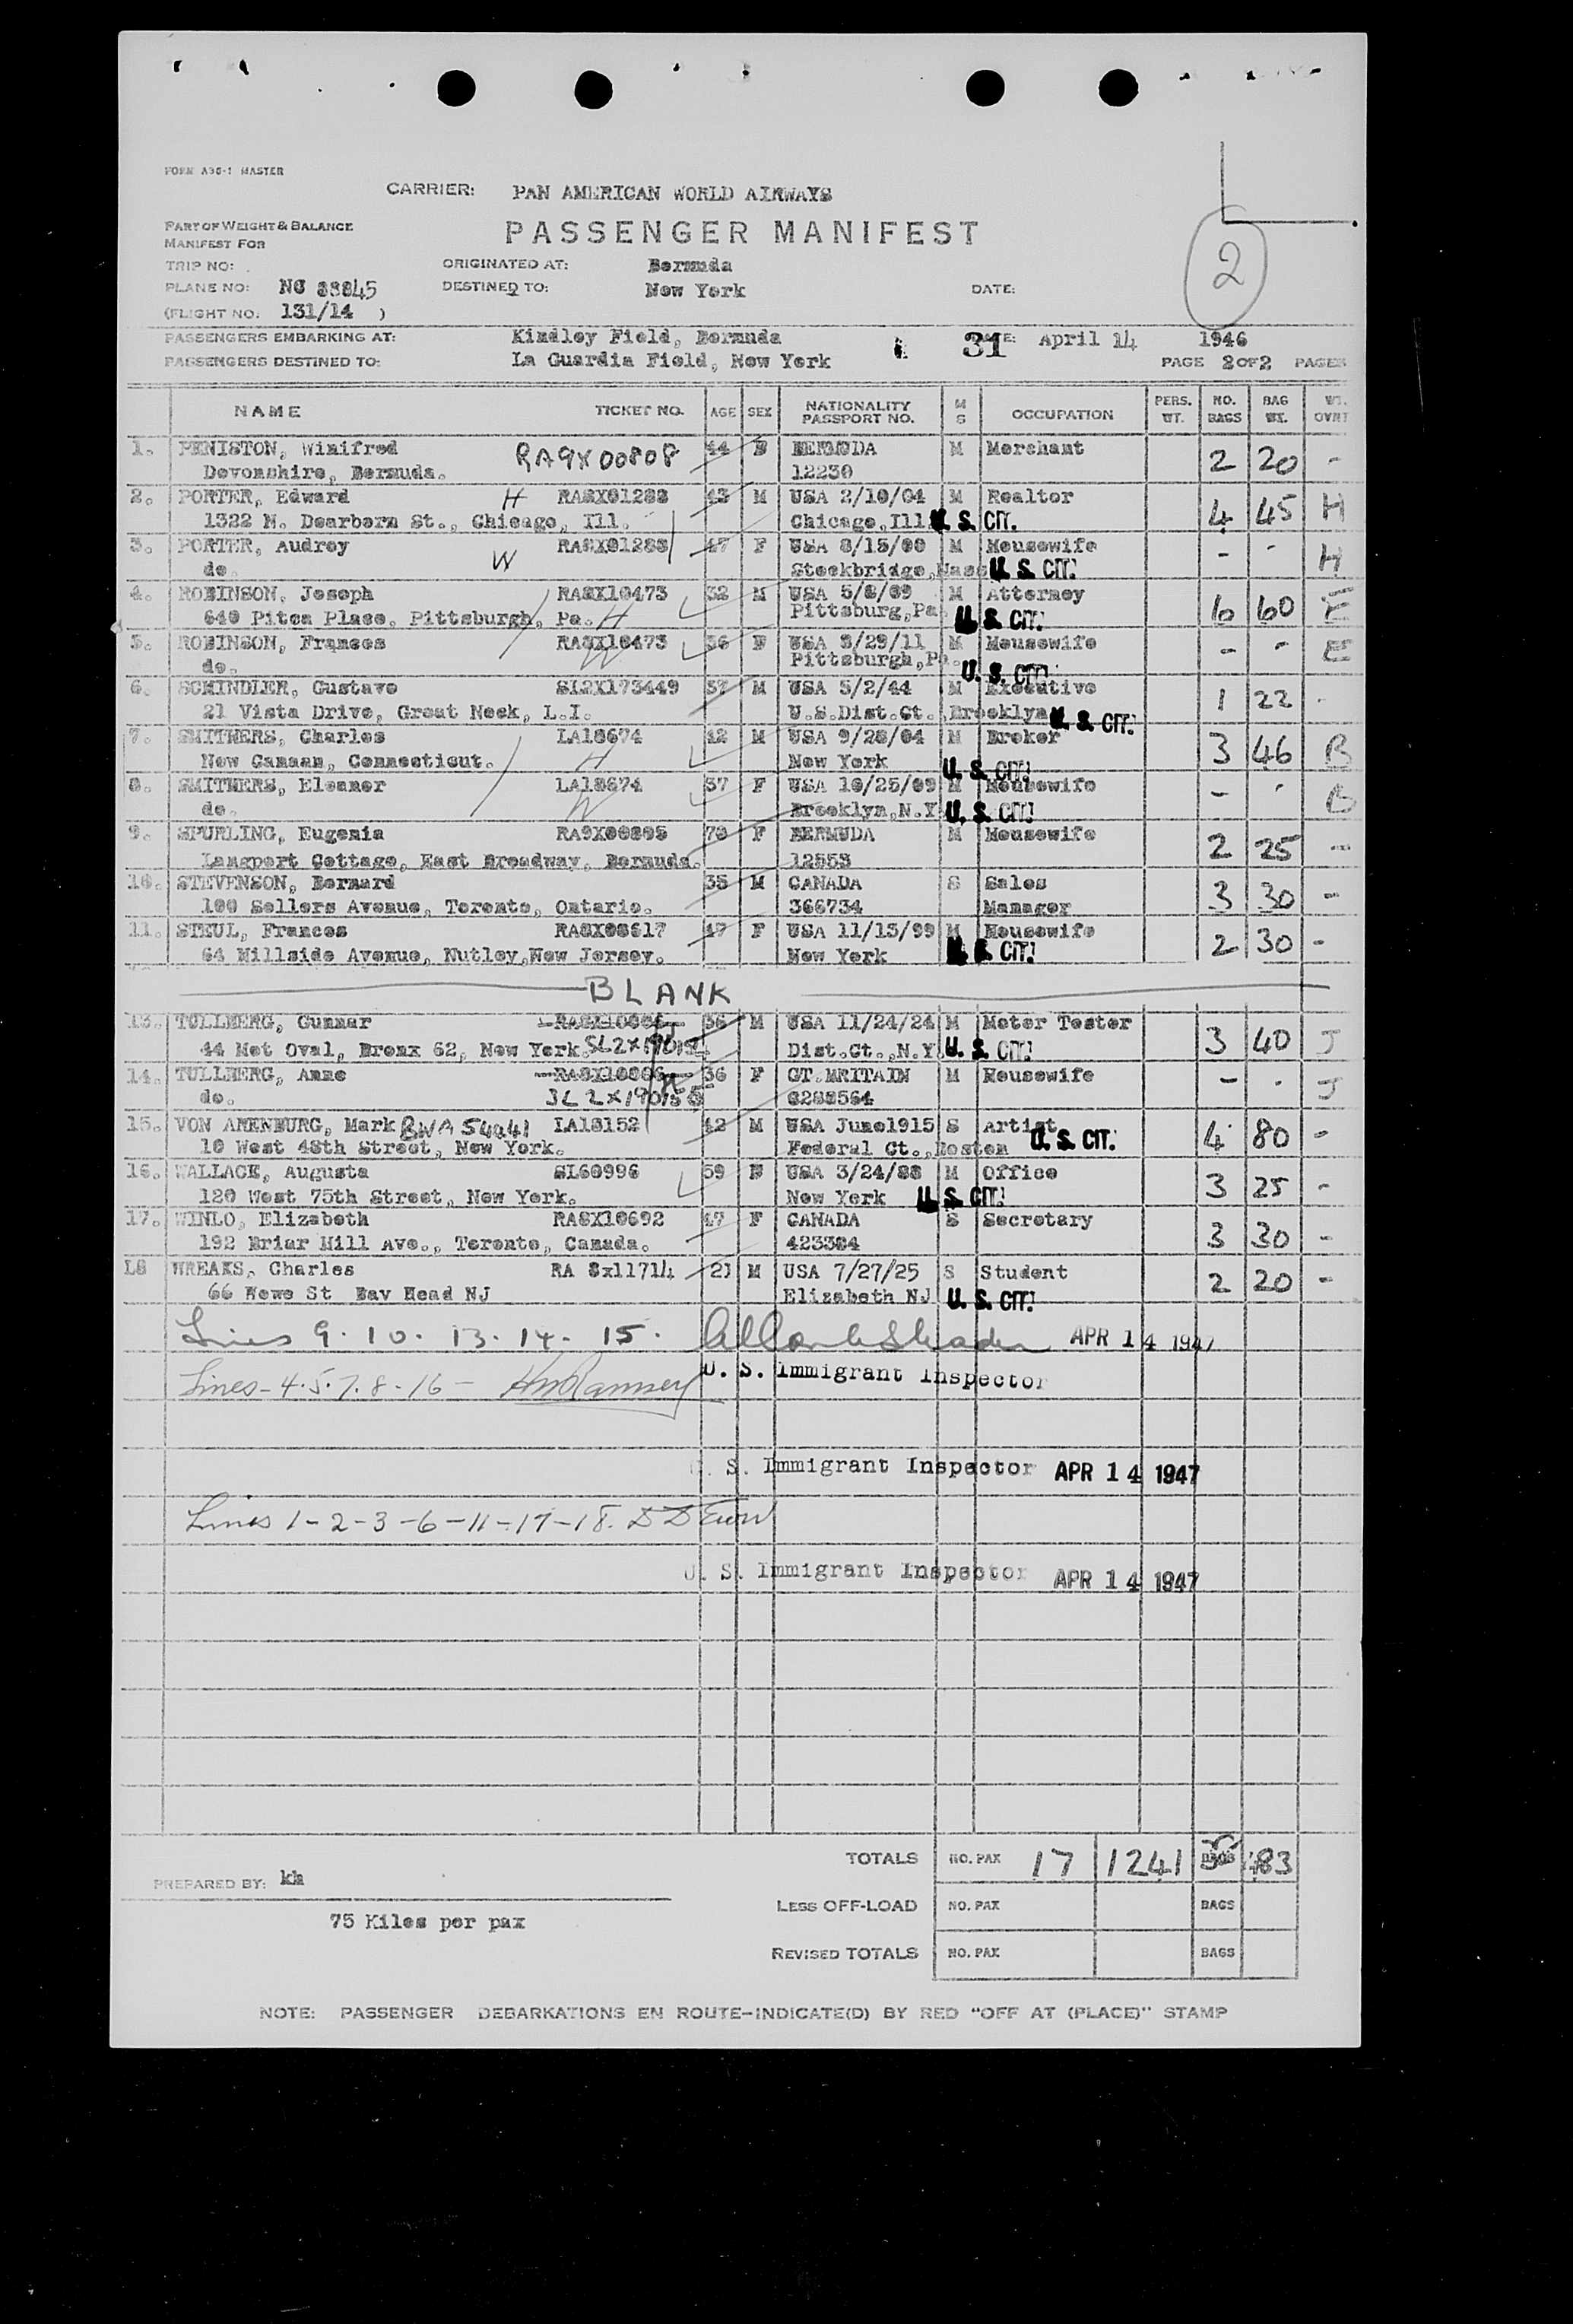 FORM A36-1 MASTER
CARRIER: PAN AMERICAN WORLD AIRWAYS
PART OF WEIGHT & BALANCE
MANIFEST FOR
PASSENGER MANIFEST
2
TRIP NO: ORIGINATED AT: Bermuda
PLANE NO: NC 88845 DESTINED TO: New York DATE:
(FLIGHT NO: 131/14 )
PASSENGERS EMBARKING AT: Kindley Field, Bermuda 31 April 14 1946
PASSENGERS DESTINED TO: La Guardia Field, New York PAGE 2 OF 2 PAGES
NAME TICKET NO. AGE SEX NATIONALITY PASSPORT NO. M S OCCUPATION PERS. WT. NO. BAGS BAG WT. WT. OVRT
1. PENISTON, Winifred RA9X00808 44 F BERMUDA M Merchant 2 20 -
Devonshire, Bermuda. 12230
2. PORTER, Edward H RA8X01288 43 M USA 2/10/04 M Realtor 4 45 H
1322 N. Dearborn St., Chicago, Ill. Chicago, Ill U. S. CIT.
3. PORTER, Audrey W RA8X01288 47 F USA 8/15/00 M Housewife - - H
do. Stockbridge, Mass U. S. CIT.
4. ROBINSON, Joseph RA8X10473 32 M USA 5/8/09 M Attorney 6 60 E
640 Pitcn Place. Pittsburgh, Pa. H Pittsburg, Pa U. S. CIT.
5. ROBINSON, Frances RA8X10473 36 F USA 3/29/11 M Housewife - - E
do. W Pittsburgh, Pa. U. S. CIT.
6. SCHINDLER, Gustave SL2X173449 57 M USA 5/2/44 M Executive 1 22 -
21 Vista Drive, Great Neck, L.I. U.S.Dist.Ct. Brooklyn U. S. CIT.
7. SMITHERS, Charles LA18674 42 M USA 9/28/04 M Broker 3 46 B
New Canaan, Connecticut. H New York U. S. CIT.
8. SMITHERS, Eleanor LA18674 37 F USA 10/25/09 M Housewife - - B
do. W Brooklyn, N.Y U. S. CIT.
9. SPURLING, Eugenia RA9X00805 70 F BERMUDA M Housewife 2 25 -
Langport Cottage, East Broadway, Bermuda. 12553
10. STEVENSON, Bernard 35 M CANADA S Sales 3 30 -
100 Sellers Avenue, Toronto, Ontario. 366734 Manager
11. STEUL, Frances RA8X08617 47 F USA 11/15/99 M Housewife 2 30 -
64 Hillside Avenue, Nutley, New Jersey. New York U. S. CIT.
BLANK
13. TULLBERG, Gunnar 56 M USA 11/24/24 M Meter Tester 3 40 J
44 Met Oval, Bronx 62, New York. Dist.Ct., N.Y. U. S. CIT.
14. TULLBERG, Anne 36 F GT.BRITAIN M Housewife - - J
do. SL2X190155 6288564
15. VON ARENBURG, Mark BWA 54041 LA18152 42 M USA June1915 S Artist 4 80 -
10 West 48th Street, New York. Federal Ct., Boston U. S. CIT.
16. WALLACE, Augusta SL60996 59 F USA 3/24/88 M Office 3 25 -
120 West 75th Street, New York. New York U. S. CIT.
17. WINLO, Elizabeth RA8X10692 47 F CANADA S Secretary 3 30 -
192 Briar Hill Ave., Toronto, Canada. 423384
18 WREAKS, Charles RA 8x11714 21 M USA 7/27/25 S Student 2 20 -
66 Howe St Bay Head NJ Elizabeth NJ U. S. CIT.
Lines 9. 10. 13. 14. 15. APR 14 1947
U. S. Immigrant Inspector
Lines - 4.5.7.8.16 - HM Ramsey
U. S. Immigrant Inspector APR 14 1947
Lines 1-2-3-6-11-17-18.
U. S. Immigrant Inspector APR 14 1947
TOTALS NO. PAX 17 1241 BAGS 483
PREPARED BY: kh
LESS OFF-LOAD NO. PAX BAGS
75 Kilos per pax
REVISED TOTALS NO. PAX BAGS
NOTE: PASSENGER DEBARKATIONS EN ROUTE-INDICATE(D) BY RED "OFF AT (PLACE)" STAMP